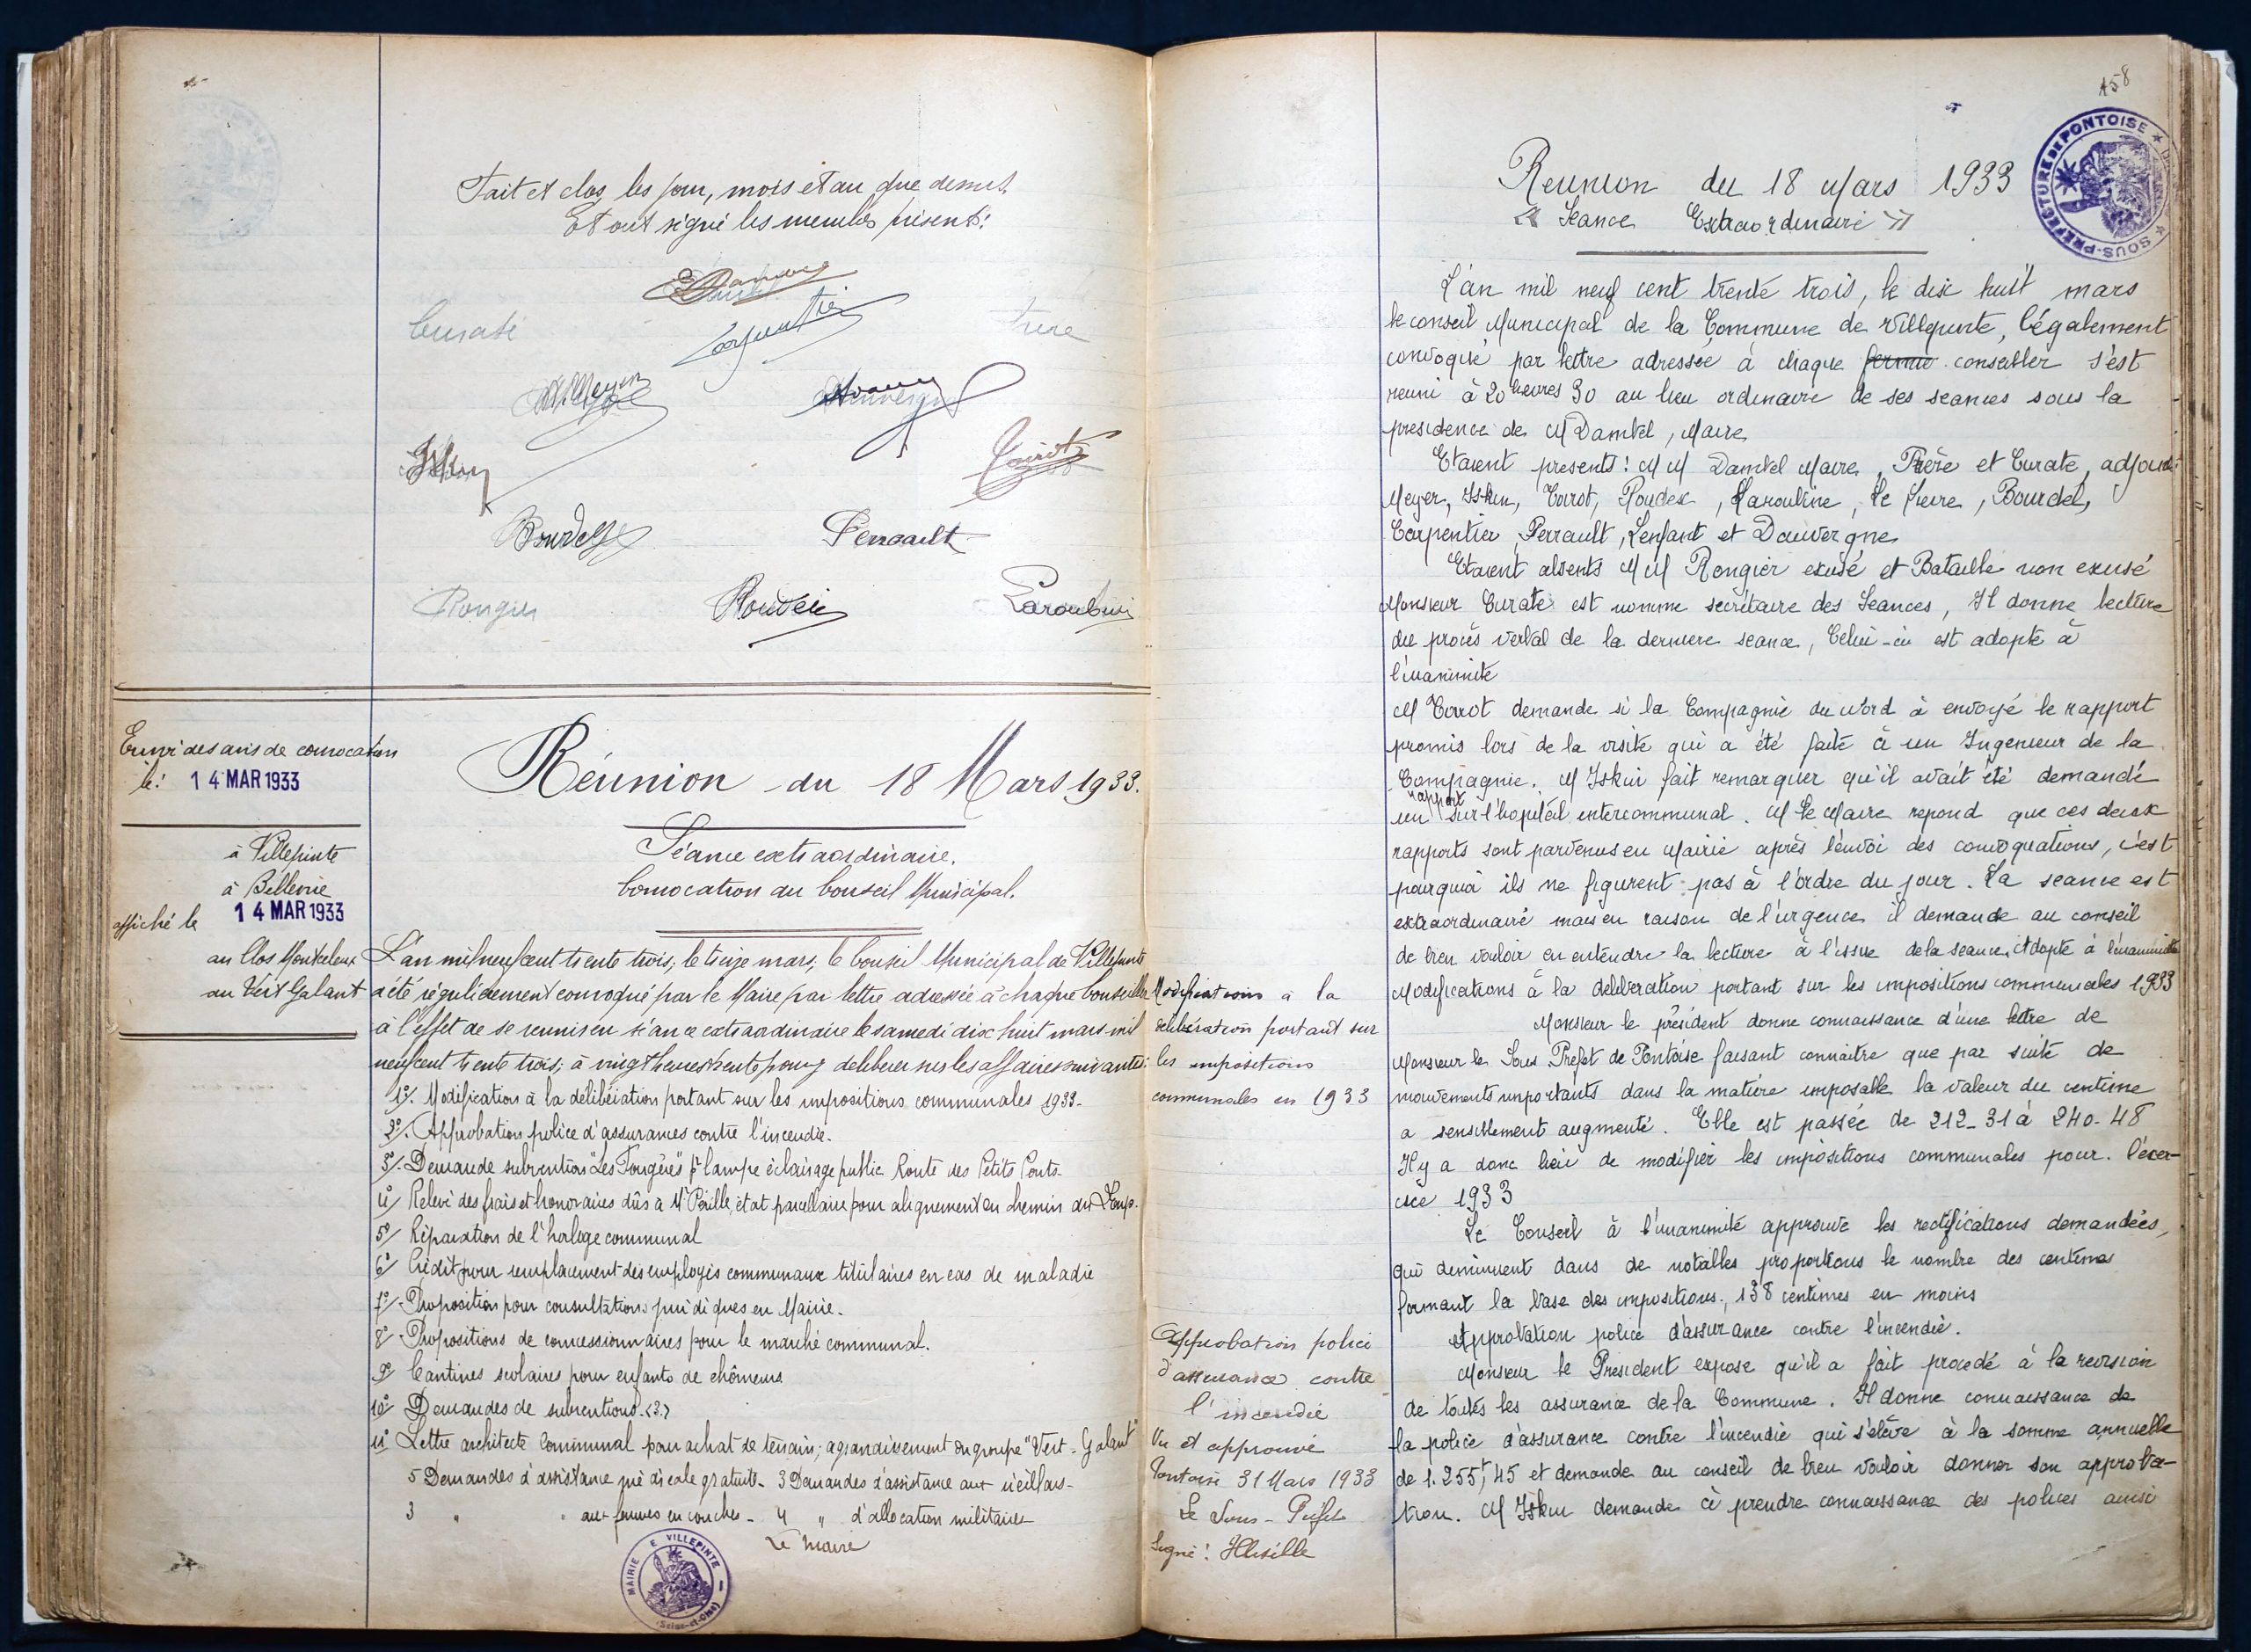 Fait et clos, les jour, mois et an que dessus.
Et ont signé les membres présents:
Curate
Carpentier
Frère
Meyer
Dauvergne
Iskin
Coirot
Bourdel
Perrault
Rongier
Roudeix
Laroubine
Envoi des avis de convocation
le: 14 MAR 1933
à Villepinte
à Bellevue
affiché le 14 MAR 1933
au Clos Montceleux
au Vert Galant
Réunion du 18 Mars 1933.
Séance extraordinaire.
Convocation du Conseil Municipal.
L'an mil neuf cent trente trois, le treize mars, le Conseil Municipal de Villepinte
a été régulièrement convoqué par le Maire par lettre adressée à chaque Conseiller
à l'effet de se reunir en séance extraordinaire le samedi dix huit mars mil
neuf cent trente trois, à vingt heures trente pour y deliberer sur les affaires suivantes:
1°/. Modification à la délibération portant sur les impositions communales 1933.
2°/. Approbation police d'assurances contre l'incendie.
3°/. Demande subvention "Les Fougères" pr lampe éclairage public Route des Petits Ponts.
4°/ Relevé des frais et honoraires dûs à Mr état parcellaire pour alignement du chemin du Loup.
5°/ Réparation de l'horloge communal
6°/ Crédit pour remplacement des employés communaux titulaires en cas de maladie
7°/. Proposition pour consultations juridiques en Mairie.
8° Propositions de concessionnaires pour le marché communal.
9° Cantines scolaires pour enfants de chômeurs
10° Demandes de subventions (3.)
11° Lettre architecte communal pour achat de terrain; agrandissement du groupe "Vert-Galant"
5 Demandes d'assistance médicale gratuite. 3 Demandes d'assistance aux vieillars.
3 " " aux femmes en couches - 4 " d'allocation militaire
Le Maire
MAIRIE E VILLEPINTE (Seine-et-Oise)
158
SOUS-PREFECTURE DE PONTOISE
Reunion du 18 Mars 1933
« Seance Extraordinaire »
L'an mil neuf cent trente trois, le dix huit mars
le conseil Municipal de la Commune de Villepinte, légalement
convoqué par lettre adressée à chaque conseiller s'est
reuni à 20 heures 30 au lieu ordinaire de ses seances sous la
presidence de M Dambel, Maire
Etaient presents: MM Dambel Maire, Frère et Curate, adjoints
Meyer, Iskin, Coirot, Roudeix, Laroubine, Le Fevre, Bourdel,
Carpentier, Perrault, Lenfant et Dauvergne
Etaient absents MM Rongier exusé et Bataille non exusé
Monsieur Curate est nomme secrétaire des Seances, Il donne lecture
du procès verbal de la derniere seance, Celui-ci est adopte à
l'unanimite
M Coirot demande si la Compagnie du Nord à envoyé le rapport
promis lors de la visite qui a été faite à un Ingenieur de la
Compagnie. M Iskin fait remarquer qu'il avait été demandé
un rapport sur l'hopital intercommunal. M le Maire repond que ces deux
rapports sont parvenus en Mairie après l'envoi des convoquations, c'est
pourquoi ils ne figurent pas à l'ordre du jour. La seance est
extraordinaire mais en raison de l'urgence il demande au conseil
de bien vouloir en entendre la lecture à l'issue de la seance. Adopte à l'unanimite
Modifications à la deliberation portant sur les impositions communales 1933
Monsieur le président donne connaissance d'une lettre de
Monsieur le Sous Prefet de Pontoise faisant connaitre que par suite de
mouvements importants dans la matiere imposable la valeur du centime
a sensiblement augmenté. Elle est passée de 212-31 à 240-48
Il y a donc lieu de modifier les impositions communales pour l'exer-
cice 1933
Le Conseil à l'unanimité approuve les rectifications demandées,
qui diminuent dans de notables proportions le nombre des centimes
formant la base des impositions, 138 centimes en moins
Approbation police d'assurance contre l'incendie.
Monsieur le President expose qu'il a fait procedé à la revision
de toutes les assurance de la Commune. Il donne connaissance de
la police d'assurance contre l'incendie qui s'élève à la somme annuelle
de 1.255f,45 et demande au conseil de bien vouloir donner son approba-
tion. M Iskin demande à prendre connaissance des polices ainsi
Modifications à la
délibération portant sur
les impositions
communales en 1933
Approbation police
d'assurance contre
l'incendie
Vu et approuvé
Pontoise 31 Mars 1933
Le Sous-Préfet
Signé: